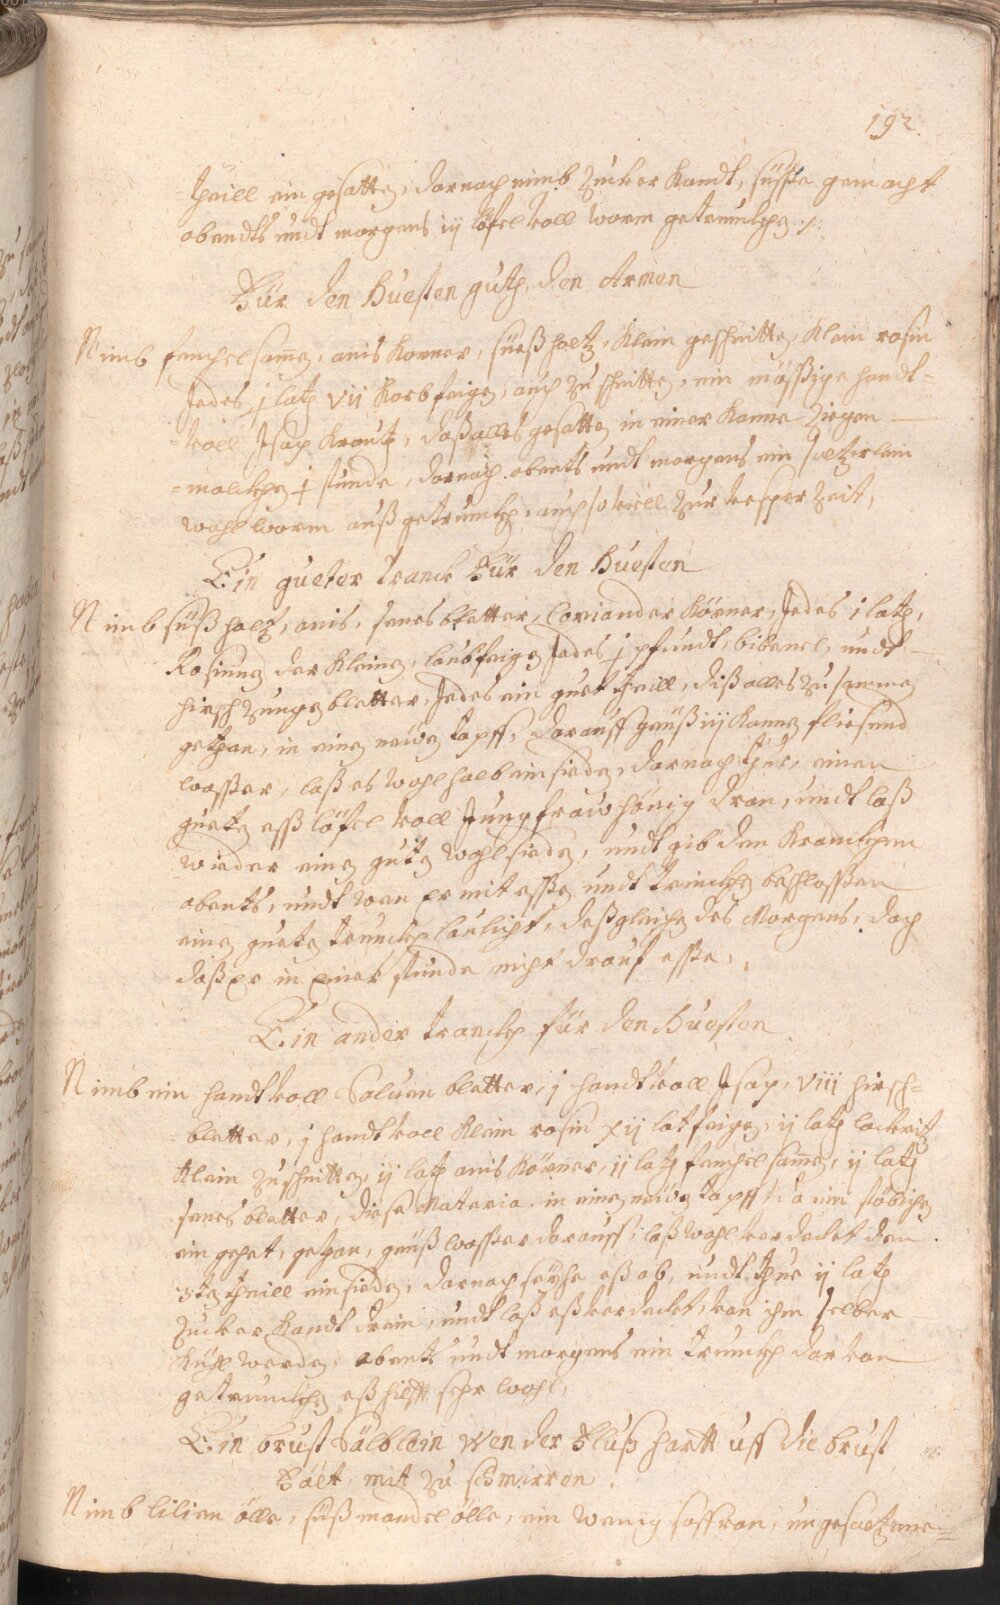 192.
theill ein gesatten, darnach nimb Zucker Kandt, süsse gemacht
abendts undt morgens iij löfel voll warm getrunckhen ./.
Für den Huesten guth, den Armen
Nimb fenchel samen, anis Korner, süeßholtz, Klein geschnitten, Klein rosin
Jedes j lath VII Korb feigen, auch zu schnitten, ein mässige handt=
=voll Isop Krauth, daß alles gesatten in einer Kanne Ziegen
=molckhen j stunde, darnach abents undt morgens ein
wohl warm auß getrunckh, auch so viell zur vesper Zeit,
Ein gueter tranck Für den Huesten
Nimb süßholtz, anis, senes bletter, Coriander Körner, Jedes j lath,
Rosinen der Kleinen, laubfeigen Jedes j pfundt, bibenel, undt
hirsch Zungen bletter, Jedes ein guet theill, diß alles zu samen
gethan, in einen neüen topff, darauff geuß iij Kannen fliesend
wasser, laß es wohl halb ein sieden, darnach thue, einen
gueten eßlöfel voll Jungfraw hönig dran, undt laß
wieder einen guten wohl sieden, undt gib dem Kranckhen
abents, undt wan er mit essen undt trinckhen beschlossen
einen gueten trunckh laulicht, deßgleichen des Morgens, doch
daß er in einer stunde nicht drauf esse,
Ein ander tranckh für den Huesten
Nimb ein handt voll Saluien bletter, j handt voll Isop, VIII hirsch=
=bletter, j handt voll Klein rosin xij lot feigen, ij lath lackritz
Klein zu schnitten, ij lath anis Körner, ij lath fenchel samen, ij lath
senes bletter, diese Materia in einen neüen topff da ein stübichen
ein gehet, gethan, geuß wasser darauff, laß wohl verdeckt den
3ten theill ein sieden, darnach seyhe eß ab, undt thue ij lath
Zucker Kandt drein, undt laß eß verdeckt, von ihm selber
Kühl werden, abents undt morgens ein trunckh dar von
getrunckhen eß hilfft sehr wohl,
Ein brust Sälblein wen der Fluß hartt uff die brust
Fält, mit zu schmirren.
Nimb lilien ölle, süß mandel ölle, ein wenig saffran, ungesaltzene